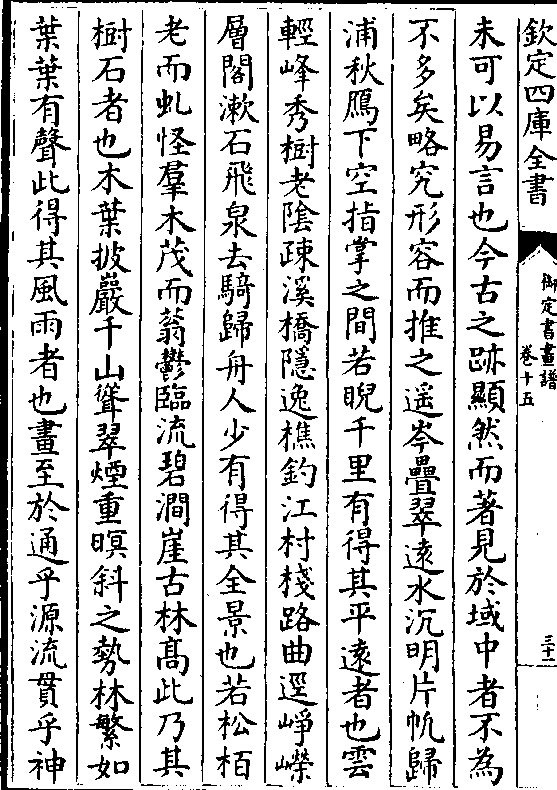 欽定四庫全書
御定書畫譜
卷十五
三十二
未可以易言也今古之跡顯然而著見於域中者不為
不多矣略究形容而推之遥岑疊翠遠水沉明片㠶歸
浦秋鴈下空指掌之間若睨千里有得其平逺者也雲
輕峰秀樹老陰疎溪橋隱逸樵釣江村棧路曲逕崢嶸
層閣漱石飛泉去騎歸舟人少有得其全景也若松栢
老而虬怪羣木茂而蓊鬱臨流碧澗崖古林髙此乃其
樹石者也木葉披巖千山聳翠煙重暝斜之勢林繁如
葉葉有聲此得其風雨者也畫至於通乎源流貫乎神